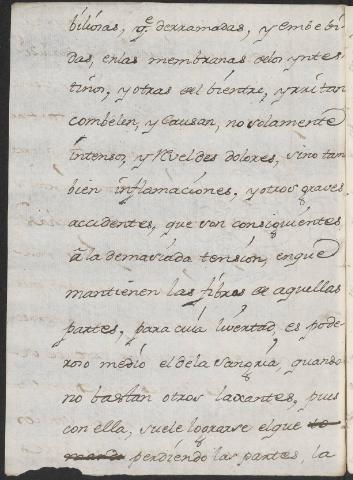 biliosas, q.e derramadas, y embebi
das, en las membranas de los yntes
tinos, y otras del bientre, yrritan
combelen, y Causan, no solamente
intensos, y Rveldes dolores, sino tam
bien inflamaciones, y otros graves
accidentes, que son consiguientes
â la demasiada tension, en que
mantienen las fibras de aquellas
partes, para cuia livertad, es pode
roso medio el de la Sangria, quando
no bastan otros laxantes, pues
con ella, suele lograrse el que
perdiendo las partes, la